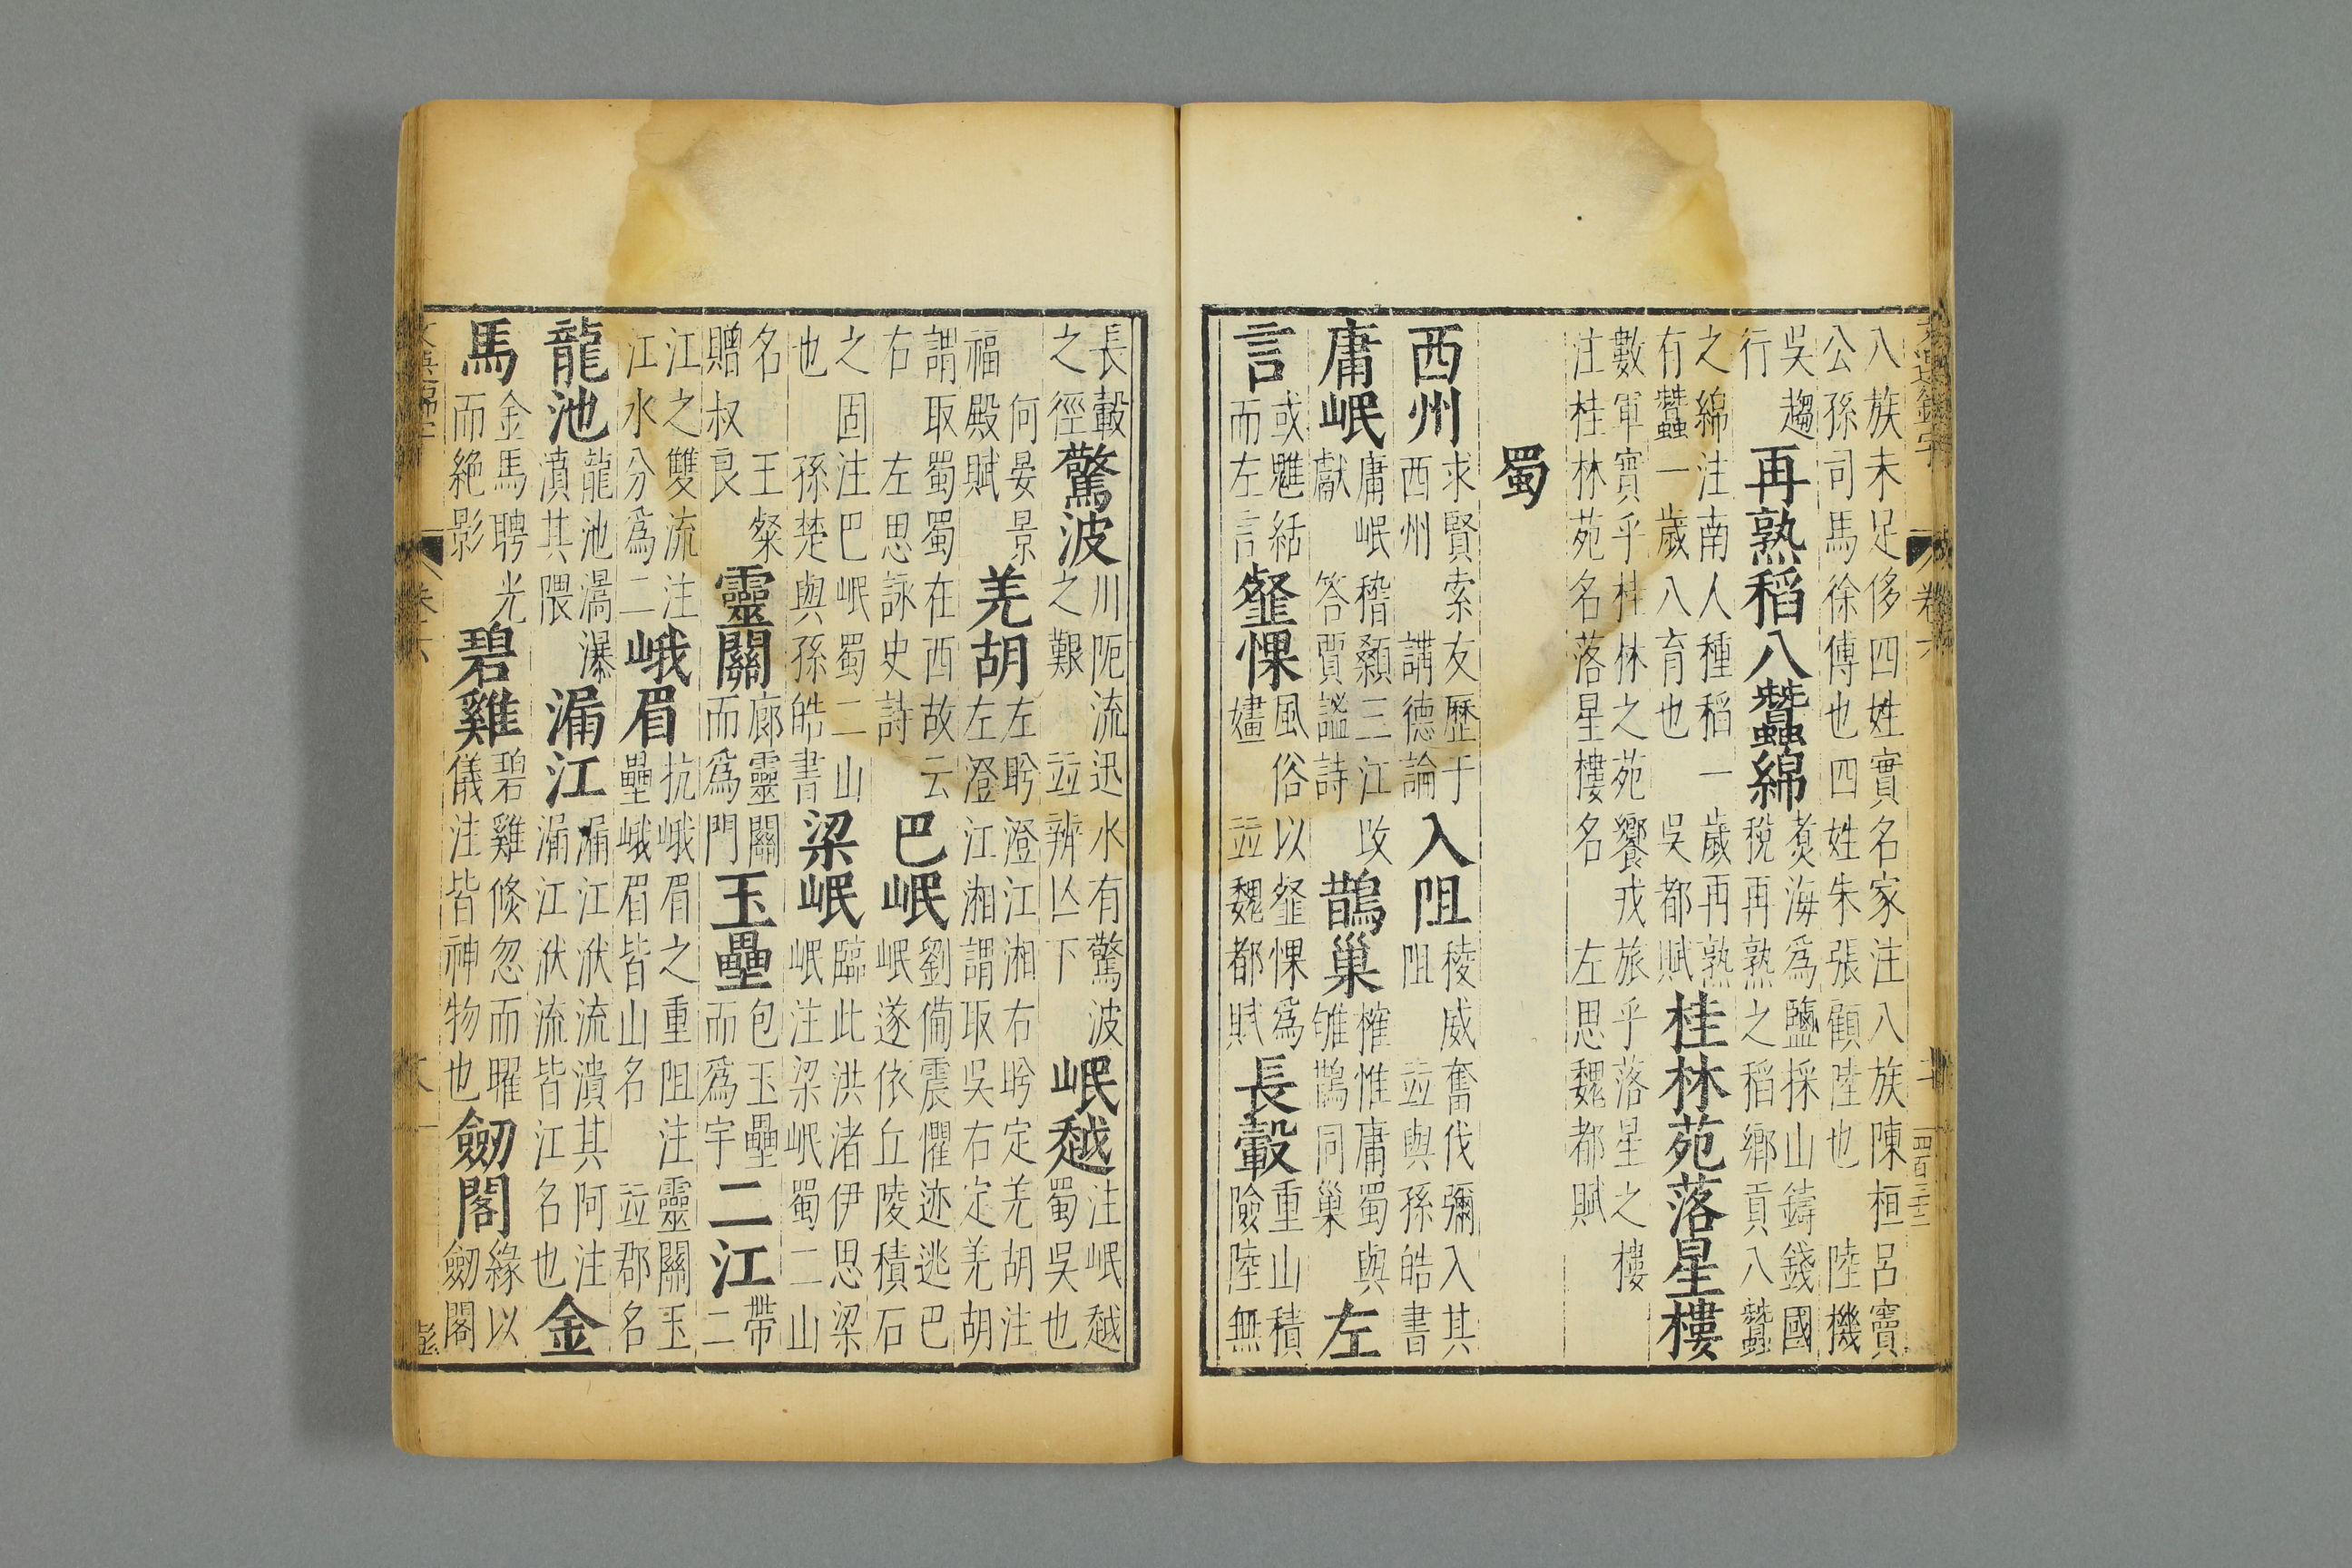 八族未足侈四姓實名家注八族陳桓呂竇公孫司馬徐傅也四姓朱張顧陸也 陸機
吳趨行再熟稻八蠶綿煑海為鹽採山鑄錢國稅再熟之稻鄉貢八蠶
之綿注南人種稻一歲再熟有蠶一歲八育也 吳都賦桂林苑落星樓
數軍實乎桂林之苑饗戎旅乎落星之樓注桂林苑名落星樓名 左思魏都賦
蜀
西州求賢索友歷于西州 講德論入阻稜威奮伐彌入其阻 並與孫皓書
庸岷庸岷稽顙三江攺獻 答賈謐詩鵲巢榷惟庸蜀與雊鵲同巢左
言或魋結而左言髽惈風俗以髽惈為嫿 並魏都賦長轂重山積險陸無
長轂之徑驚波川阨流迅水有驚波之艱 並辨亾下岷越注岷越蜀吳也
何晏景福殿賦羌胡左眄澄江湘右眄定羌胡注左澄江湘謂取吳右定羌胡
謂取蜀蜀在西故云右 左思詠史詩巴岷劉備震懼迹逃巴岷遂依丘陵積石
之固注巴岷蜀二山也 孫楚與孫皓書梁岷臨此洪渚伊思梁岷注梁岷蜀二山
名 王粲贈叔良靈關廓靈關而為門玉壘包玉壘而為宇二江帶二
江之雙流注江水分為二峨眉抗峨眉之重阻注 靈關玉壘峨眉皆山名 並郡名
龍池龍池瀑濆其隈漏江漏江洑流潰其阿注漏江洑流皆江名也金
馬金馬騁光而絶影碧雞碧雞倏忽而曜儀注皆神物也劒閣緣以劒閣
卷六